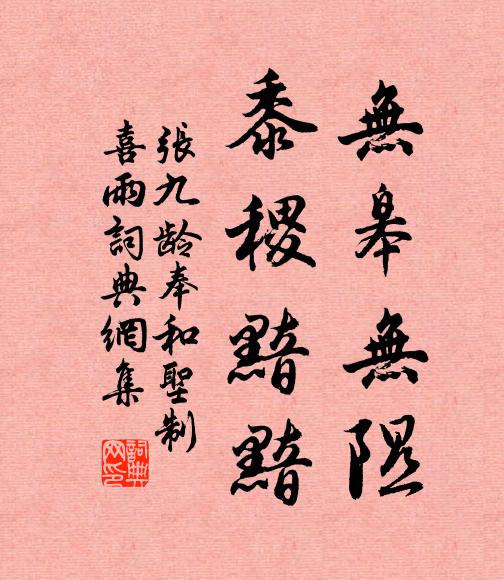 無皋無隰
黍稷黯黯
張九龄奉和聖制
喜雨詞典網集
詞典网印